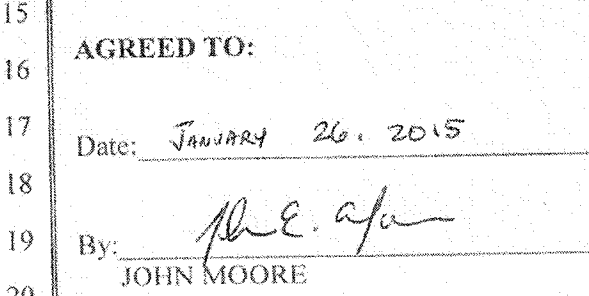 15
AGREED TO:
16
17 Date: JANUARY 26, 2015
18
19 By:
JOHN MOORE
20